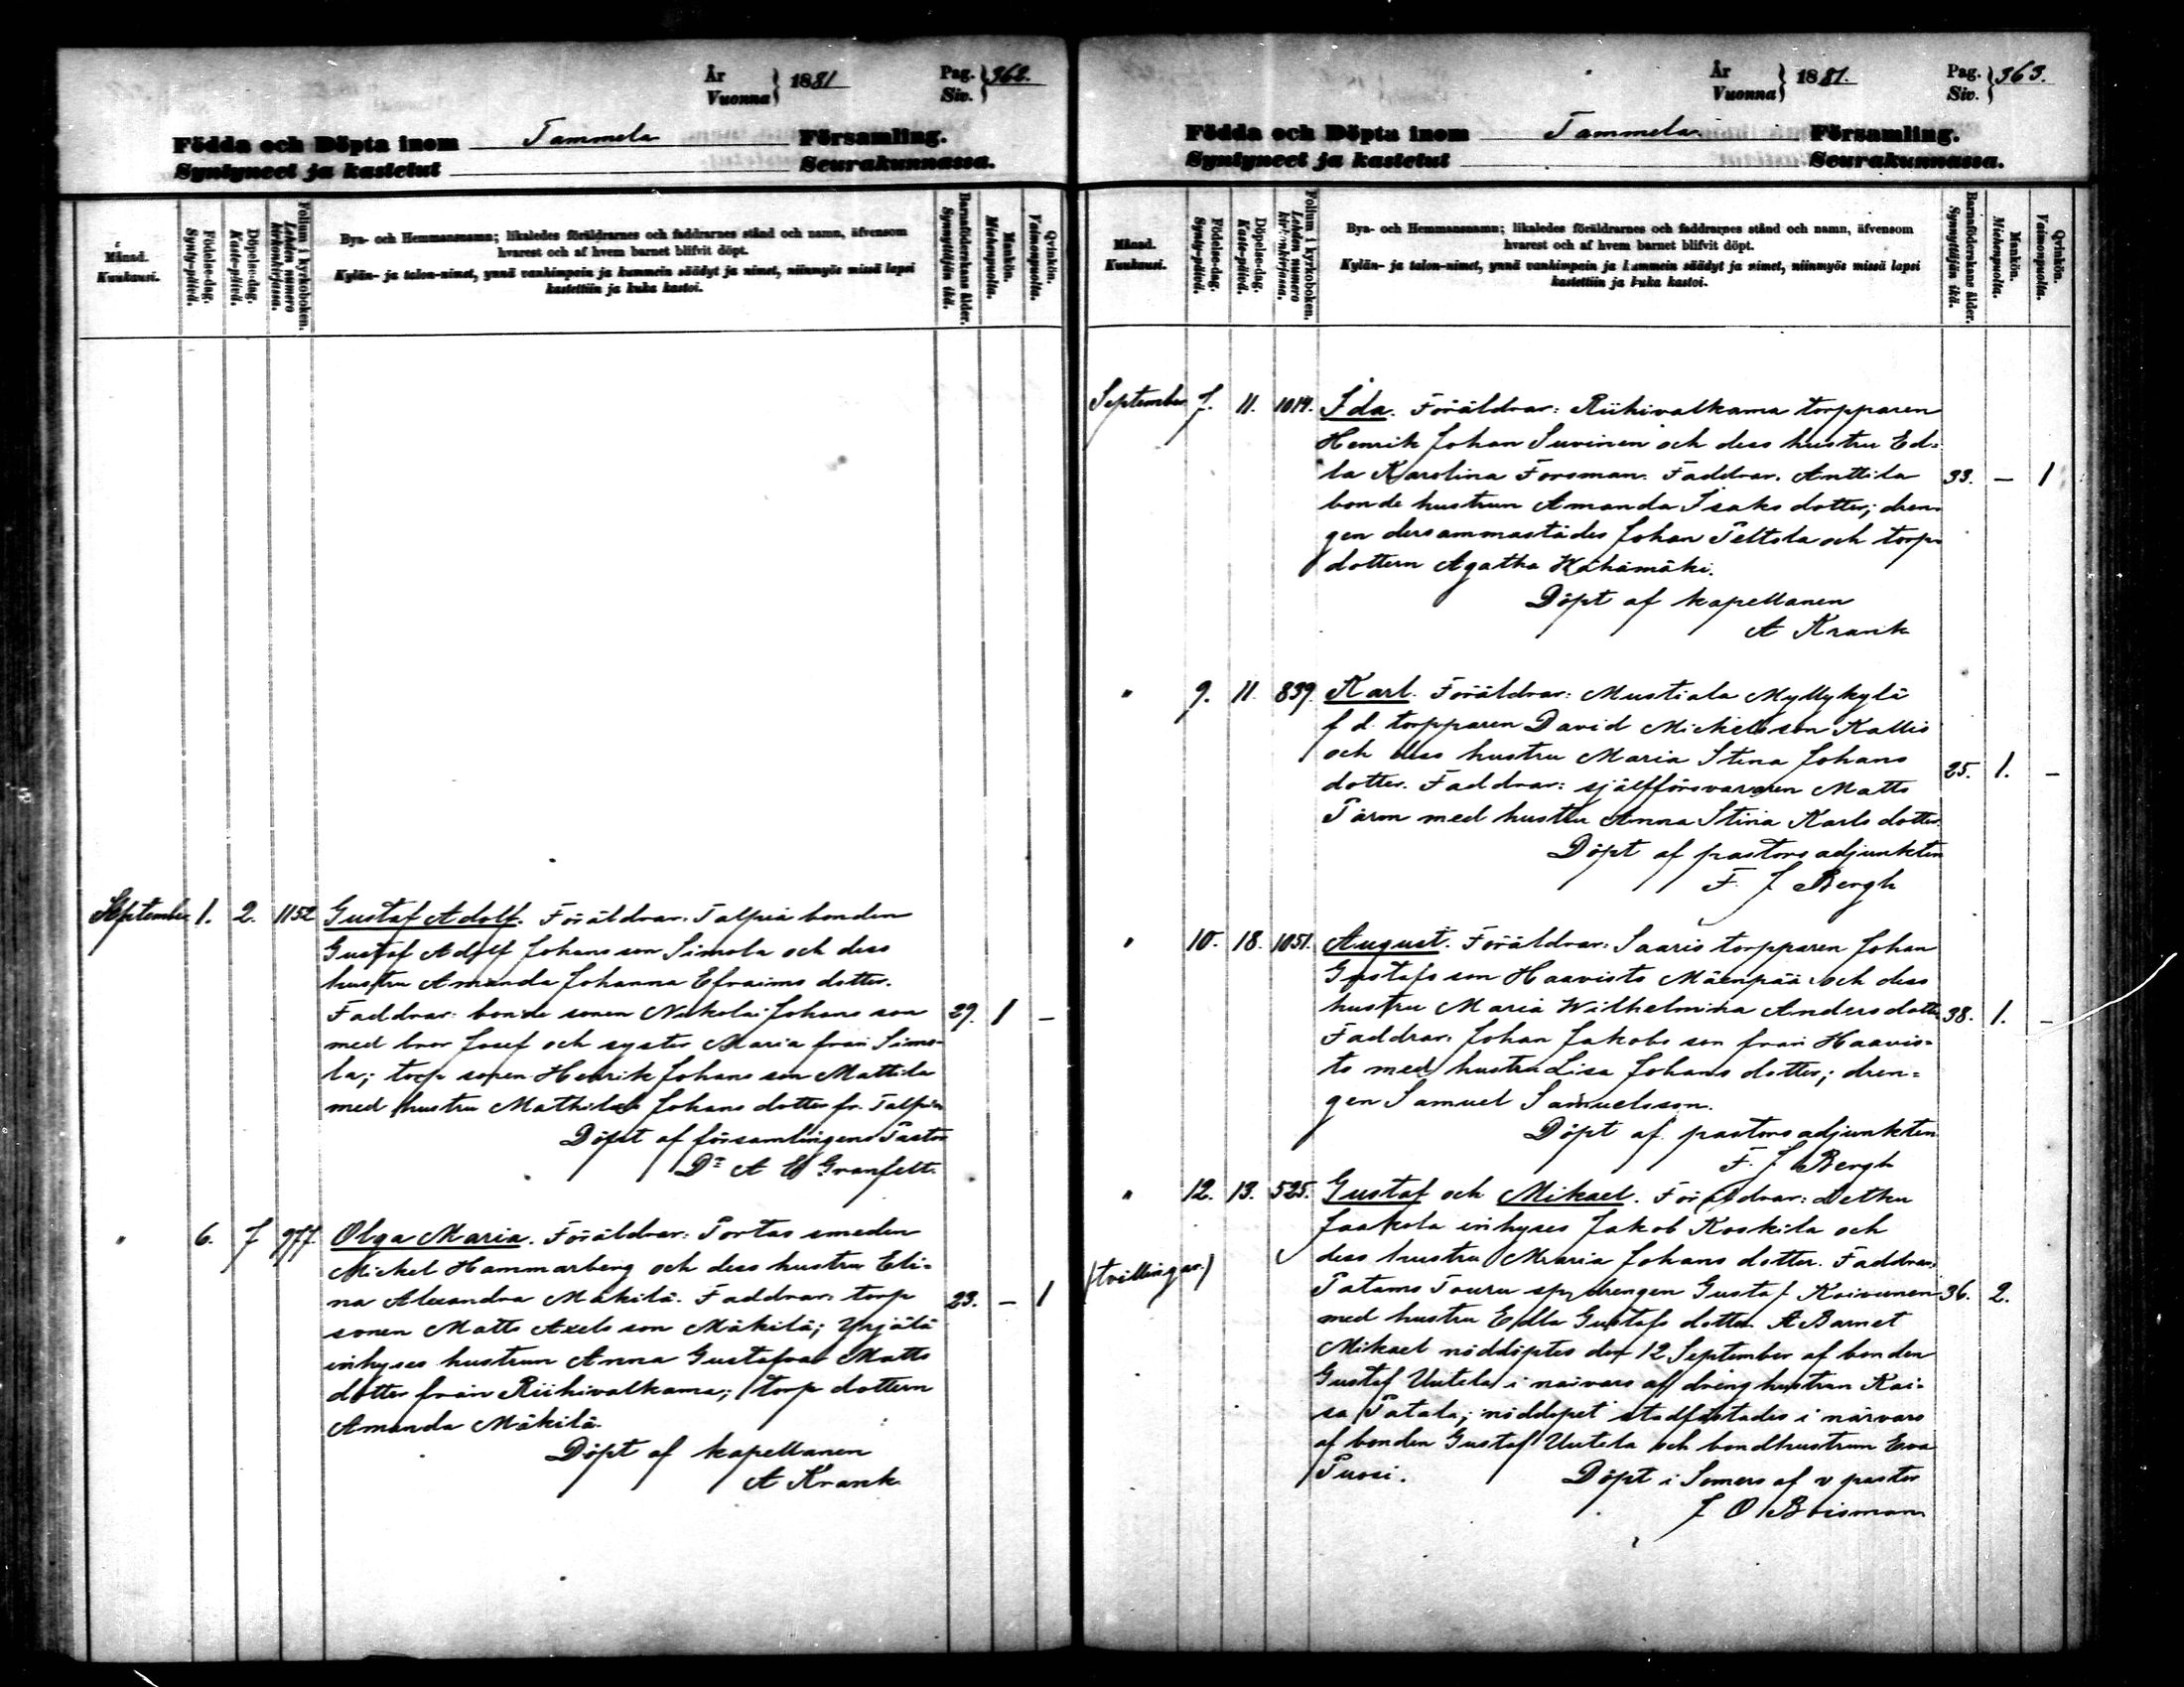 År
Vuonna } 1881
Pag.
Siv. } 362.
Födda och Döpta inom Tammela Församling.
Syntyneet ja kastetut Seurakunnassa.
Månad.
Kuukausi.
Födelse-dag.
Synty-päivä.
Döpelse-dag.
Kaste-päivä.
Folium i kyrkoboken.
Lehden numero
kirkonkirjassa.
Bya- och Hemmansnamn; likaledes föräldrarnes och faddrarnes stånd och namn, äfvensom
hvarest och af hvem barnet blifvit döpt.
Kylän- ja talon-nimet, ynnä vanhimpain ja kummein säädyt ja nimet, niinmyös missä lapsi
kastettiin ja kuka kastoi.
Barnaföderskans ålder.
Synnyttäjän ikä.
Mankön.
Miehenpuolta.
Qvinkön.
Vaimonpuolta.
September 1. 2. 1152 Gustaf Adolf. Föräldrar: Talpia bonden
Gustaf Adolf Johansson Simola och dess
hustru Amanda Johanna Efraims dotter.
Faddrar: bonde sonen Nikolai Johans son 29. 1 —
med bror Josef och syster Maria från Simo-
la; torp sonen Henrik Johans son Mattila
med hustru Mathilda Johans dotter fr. Talpia
Döpt af församlingens Pastor
Dr A E Granfelt.
" 6. 7 977. Olga Maria. Föräldrar: Portas smeden
Mickel Hammarberg och dess hustru Eli-
na Alexandra Mäkilä. Faddrar: torp 23. — 1
sonen Matts Axels son Mäkilä; Yrjälä
inhyses hustrun Anna Gustafva Matts
dotter från Riihivalkama; torp dottern
Amanda Mäkilä.
Döpt af kapellanen
A Krank
År
Vuonna } 1881.
Pag.
Siv. } 363.
Födda och Döpta inom Tammela Församling.
Syntyneet ja kastetut Seurakunnassa.
Månad.
Kuukausi.
Födelse-dag.
Synty-päivä.
Döpelse-dag.
Kaste-päivä.
Folium i kyrkoboken.
Lehden numero
kirkonkirjassa.
Bya- och Hemmansnamn; likaledes föräldrarnes och faddrarnes stånd och namn, äfvensom
hvarest och af hvem barnet blifvit döpt.
Kylän- ja talon-nimet, ynnä vanhimpain ja kummein säädyt ja nimet, niinmyös missä lapsi
kastettiin ja kuka kastoi.
Barnaföderskans ålder.
Synnyttäjän ikä.
Mankön.
Miehenpuolta.
Qvinkön.
Vaimonpuolta.
September 7. 11. 1014. Ida. Föräldrar: Riihivalkama torpparen
Henrik Johan Suvinen och dess hustru Ed-
la Karolina Forsman. Faddrar. Anttila 33. — 1
bonde hustrun Amanda Isaks dotter; dren-
gen dersammastädes Johan Peltola och torp-
dottern Agatha Kähämäki.
Döpt af kapellanen
A Krank
" 9. 11. 839. Karl. Föräldrar: Mustiala Myllykylä
f d. torpparen David Mickelsson Kallis
och dess hustru Maria Stina Johans
dotter. Faddrar: självförsvararen Matts 25. 1. —
Pärm med hustru Anna Stina Karls dotter.
Döpt af pastors adjunkten
F. J Bergh
" 10. 18. 1051. August. Föräldrar: Saaris torpparen Johan
Gustafs son Haavisto Mäenpää och dess
hustru Maria Wilhelmina Anders dotter 38. 1. —
Faddrar: Johan Jakobs son från Haavis-
to med hustru Lisa Johans dotter; dren-
gen Samuel Samuelsson.
Döpt af pastors adjunkten
F. J Bergh
" 12. 13. 525. Gustaf och Mikael. Föräldrar: Letku
Jaakola inhyses Jakob Koskila och
(tvillingar.) dess hustru Maria Johans dotter. Faddrar:
Patamo Touru spj drengen Gustaf Koivunen 36. 2.
med hustru Edla Gustafs dotter A Barnet
Mikael nöddöptes den 12 September af bonden
Gustaf Uutela i närvaro af dräng hustrun Kai-
sa Patala; nöddopet stadfästades i närvaro
af bonden Gustaf Uutela och bondhustrun Eva
Puosi. Döpt i Somero af v pastor
J O Boisman